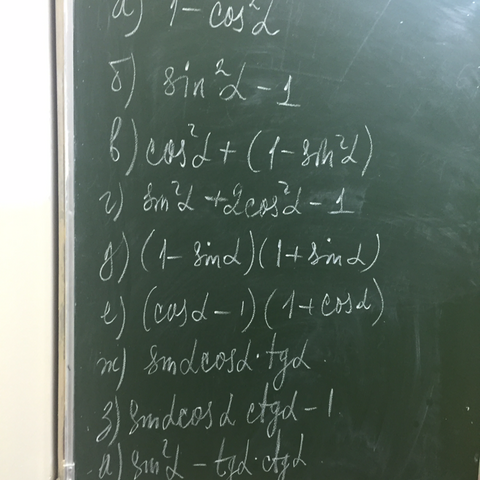 а) 1 - cos²α
б) sin²α - 1
в) cos²α + (1 - sin²α)
г) sin²α + 2cos²α - 1
д) (1 - sinα)(1 + sinα)
е) (cosα - 1)(1 + cosα)
ж) sinαcosα · tgα
з) sinαcosα ctgα - 1
и) sin²α - tgα · ctgα